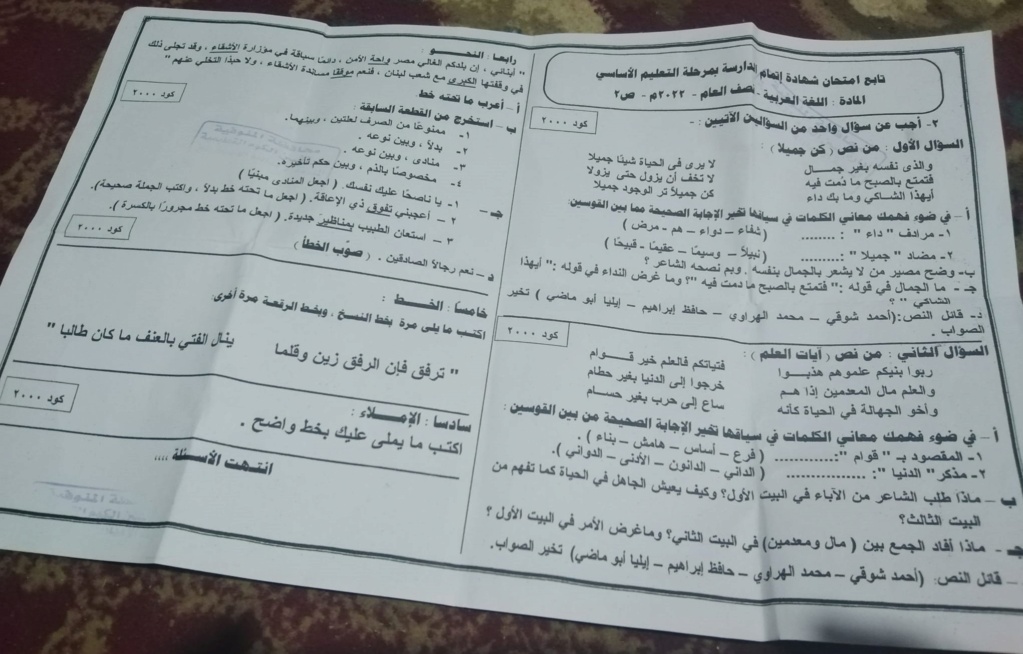 تابع امتحان شهادة إتمام الدارسة بمرحلة التعليم الأساسي
المادة : اللغة العربية - نصف العام - ٢٠٢٢م - ص٢
كود ٢٠٠٠
٢- أجب عن سؤال واحد من السؤالين الآتيين : -
السؤال الأول : من نص (كن جميلا) :
والذى نفسه بغير جمـــال لا يرى فى الحياة شيئا جميلا
فتمتع بالصبح ما دمت فيه لا تخف أن يزول حتى يزولا
أيهذا الشاكي وما بك داء كن جميلاً تر الوجود جميلا
أ – في ضوء فهمك معاني الكلمات في سياقها تخير الإجابة الصحيحة مما بين القوسين:
١- مرادف " داء " : ........ (شفاء – دواء – هم - مرض )
٢- مضاد " جميلا " :......... (نبيلاً – وسيمًا – عقيمًا - قبيحًا )
ب- وضح مصير من لا يشعر بالجمال بنفسه . وبم نصحه الشاعر ؟
جـ - ما الجمال في قوله :" فتمتع بالصبح ما دمت فيه "؟ وما غرض النداء في قوله :" أيهذا
الشاكي " ؟
د- قائل النص:(أحمد شوقي – محمد الهراوي – حافظ إبراهيم – إيليا أبو ماضي ) تخير
الصواب .
كود ٢٠٠٠
السؤال الثاني : من نص ( آيات العلم ) :
ربوا بنيكم علموهم هذبـــوا فتياتكم فالعلم خير قـــوام
والعلم مال المعدمين إذا هـم خرجوا إلى الدنيا بغير حطام
وأخو الجهالة في الحياة كأنه ساع إلى حرب بغير حســام
أ – في ضوء فهمك معاني الكلمات في سياقها تخير الإجابة الصحيحة من بين القوسين :
١- المقصود بـ " قوام ":............ ( فرع – أساس – هامش – بناء ) .
٢- مذكر" الدنيا ": ............... ( الداني – الدانون – الأدنى – الدواني ).
ب – ماذا طلب الشاعر من الآباء في البيت الأول؟ وكيف يعيش الجاهل في الحياة كما تفهم من
البيت الثالث؟
جـ - ماذا أفاد الجمع بين ( مال ومعدمين) في البيت الثاني؟ وماغرض الأمر في البيت الأول ؟
– قائل النص: (أحمد شوقي – محمد الهراوي – حافظ إبراهيم – إيليا أبو ماضي) تخير الصواب.
رابعا : النحـــو :
" أبنائي ، إن بلدكم الغالي مصر واحة الأمن ، دائمًا سباقة في مؤازرة الأشقاء ، وقد تجلى ذلك
في وقفتها الكبرى مع شعب لبنان ، فنعم موقفا مساندة الأشقاء ، ولا حبذا التخلي عنهم "
كود ٢٠٠٠
أ – أعرب ما تحته خط
ب – استخرج من القطعة السابقة :
١- ممنوعًا من الصرف لعلتين ، وبينهما.
٢- بدلاً ، وبين نوعه .
٣- منادى ، وبين نوعه .
٤- مخصوصًا بالذم ، وبين حكم تأخيره.
جـ – ١- يا ناصحًا عليك نفسك. ( اجعل المنادى مبنيًا )
٢ – أعجبني تفوق ذي الإعاقة. ( اجعل ما تحته خط بدلاً ، واكتب الجملة صحيحة).
٣ – استعان الطبيب بمناظير جديدة. ( اجعل ما تحته خط مجرورًا بالكسرة ).
د – نعم رجالاً الصادقين . ( صوّب الخطأ )
كود ٢٠٠٠
خامسًا : الخــط :
اكتب ما يلى مرة بخط النسخ ، وبخط الرقعة مرة أخرى:
" ترفق فإن الرفق زين وقلما ينال الفتي بالعنف ما كان طالبا "
كود ٢٠٠٠
سادسا : الإملاء :
اكتب ما يملى عليك بخط واضح .
انتهت الأسئلة ,,,,